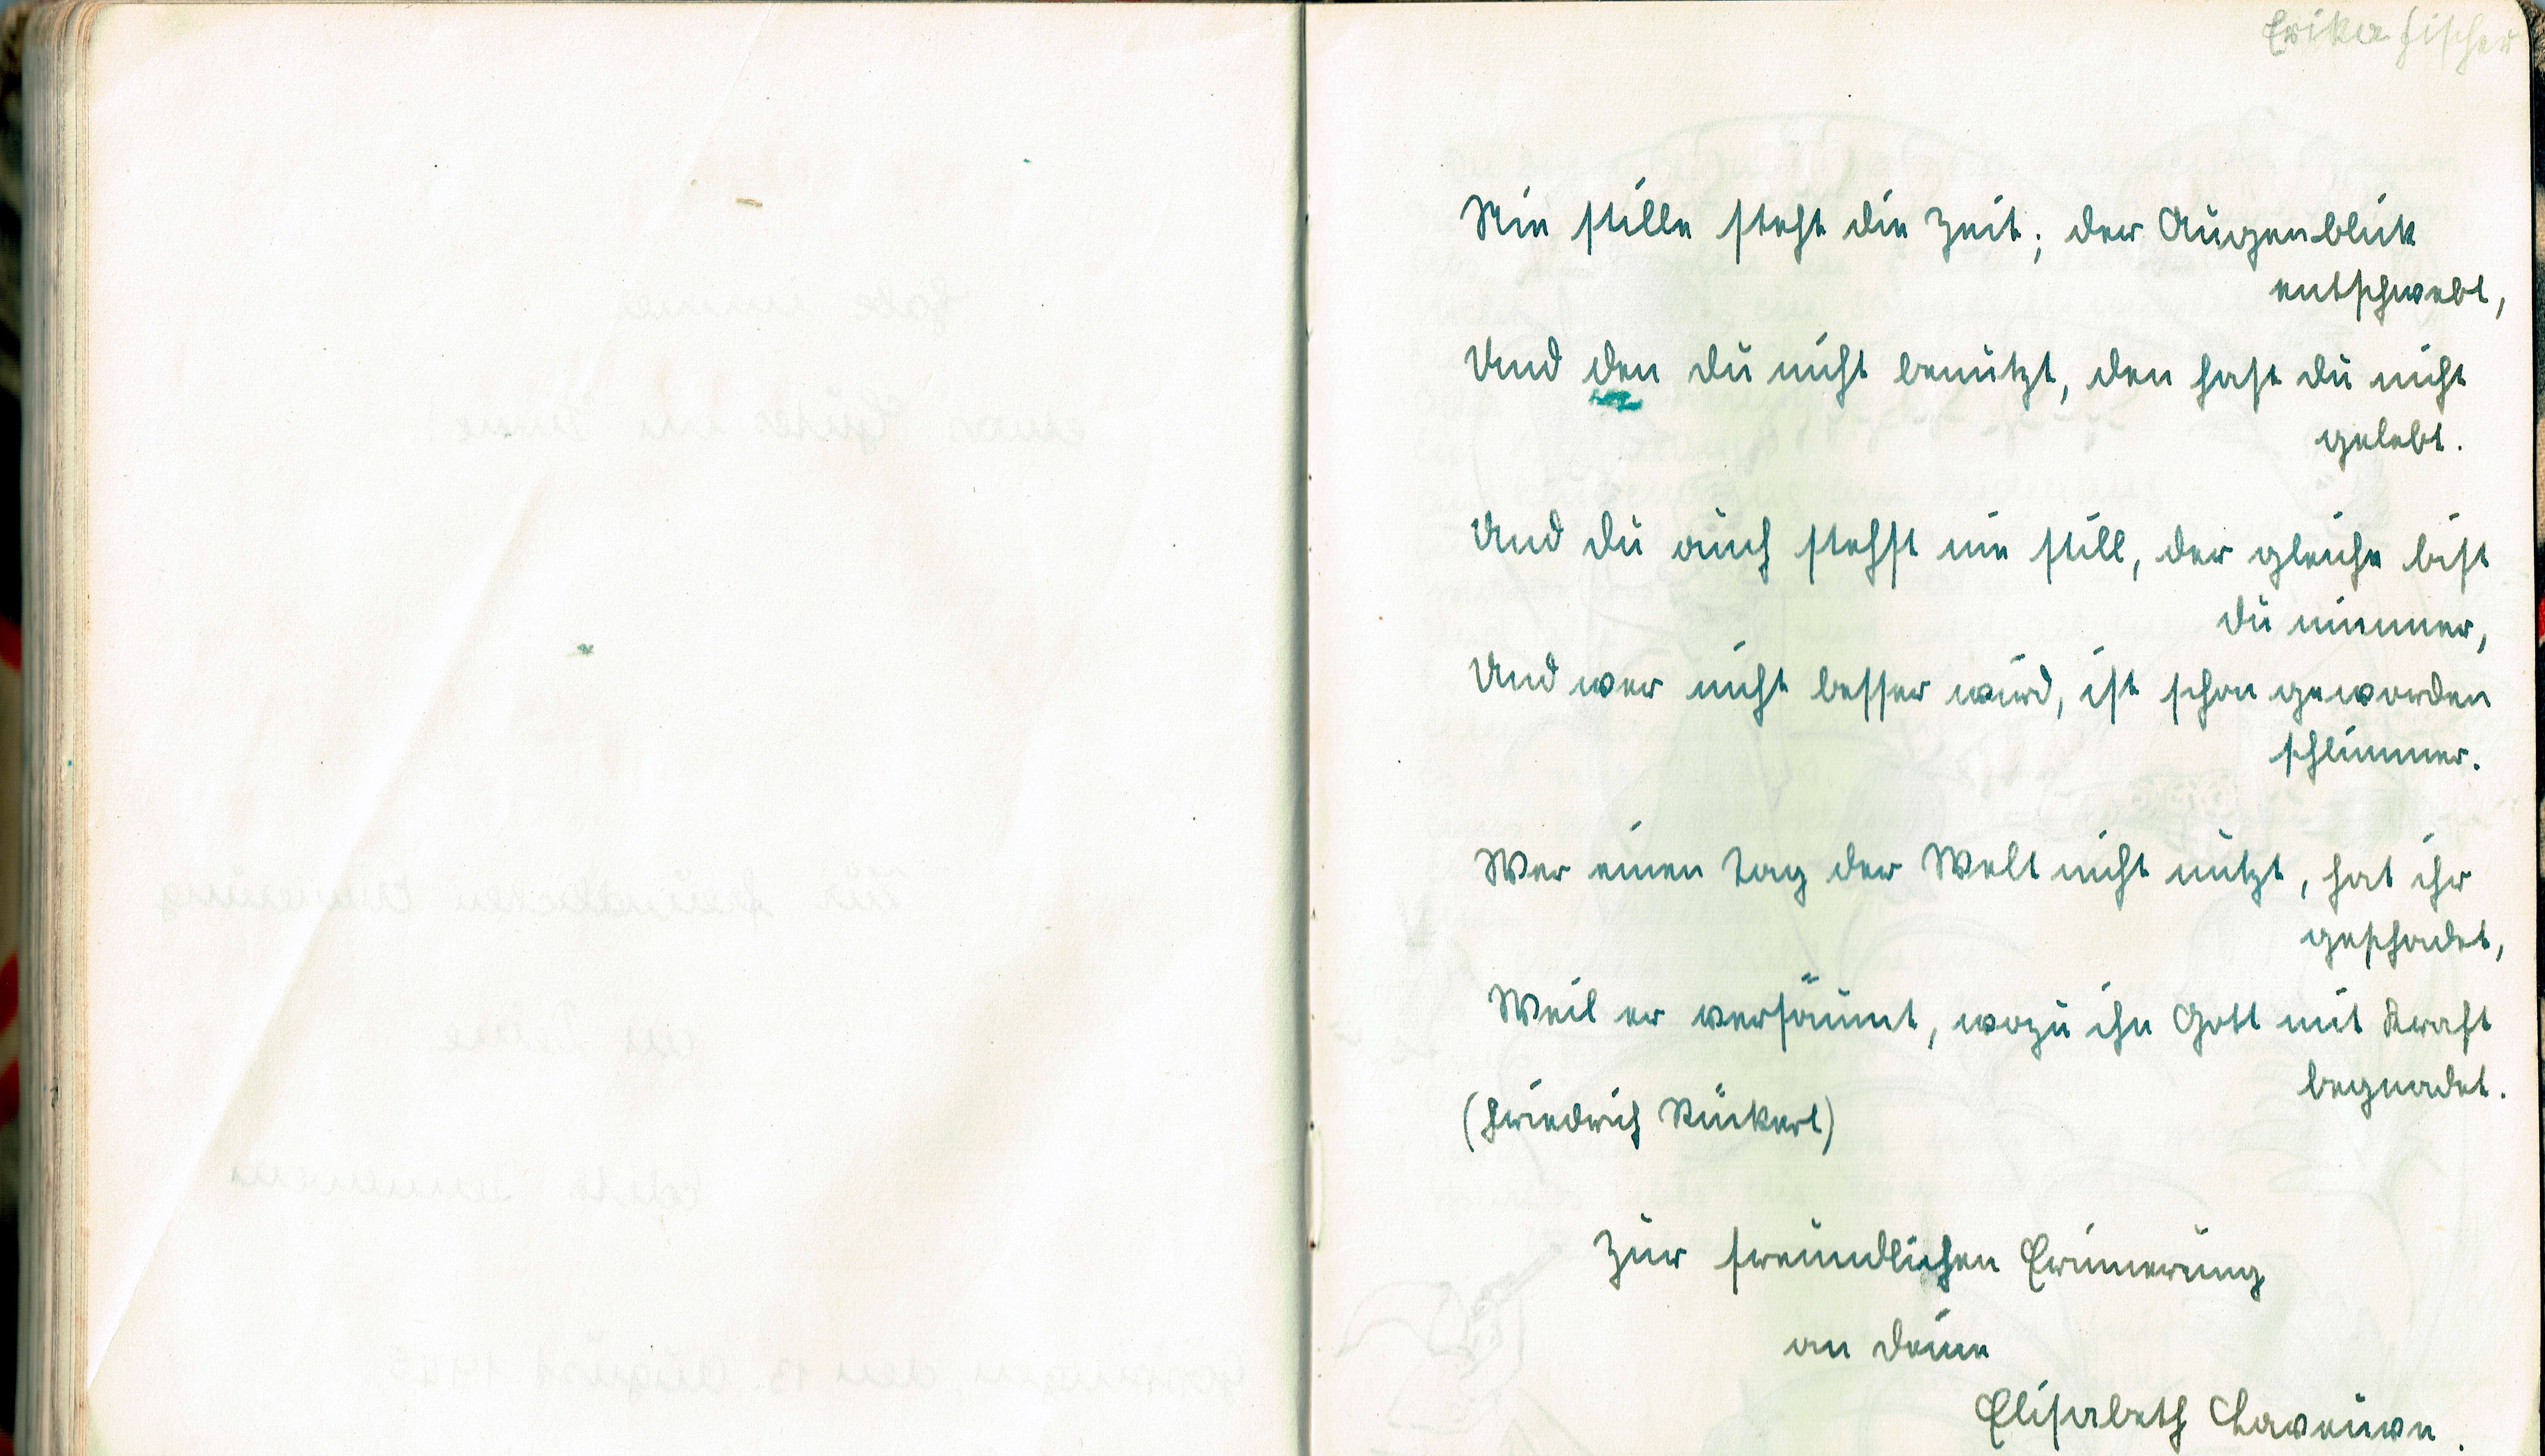 Erika Fischer
Nie stille steht die Zeit; der Augenblick
entschwebt,
Und den du nicht benutzt, den hast du nicht
gelebt.
Und du auch stehst nie still, der gleiche bist
du nimmer,
Und wer nicht besser wird, ist schon geworden
schlimmer.
Wer einen Tag der Welt nicht nutzt, hat ihr
geschadet,
Weil er versäumt, wozu ihn Gott mit Kraft
begnadet.
(Friedrich Rückert)
Zur freundlichen Erinnerung
an deine
Elisabeth